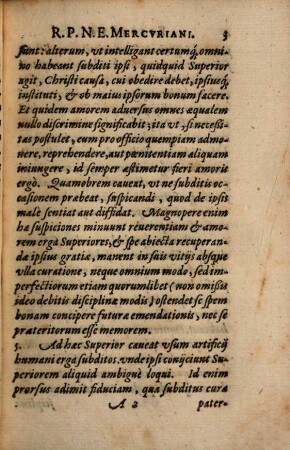 R. P. N. E. MERCVRIANI. 3
sunt: alterum, vt intelligant certumq́; omni-
no habeant subditi ipsi, quidquid Superior
agit, Christi causa, cui obedire debet, ipsiusq́;
instituti, & ob maius ipsorum bonum facere.
Et quidem amorem aduersus omnes æqualem
nullo discrimine significabit; ita vt, si necessi-
tas postulet, eum pro officio quempiam admo-
nere, reprehendere, aut pœnitentiam aliquam
iniungere, id semper æstimetur fieri amoris
ergò. Quamobrem caueat, vt ne subditis oc-
casionem præbeat, suspicandi, quod de ipsis
malè sentiat aut diffidat. Magnopere enim
hæ suspiciones minuunt reuerentiam & amo-
rem ergà Superiores, & spe abiecta recuperan-
dæ ipsius gratiæ, manent in suis vitijs absque
vlla curatione, neque omnium modo, sed im-
perfectiorum etiam quorumlibet (non omißis
ideo debitis disciplinæ modis) ostendet se spem
bonam concipere futuræ emendationis, nec se
præteritorum esse memorem.
5. Ad hæc Superior caueat vsum artificij
humani erga subditos, vnde ipsi conijciunt Su-
periorem aliquid ambiguè loqui. Id enim
prorsus adimit fiduciam, qua subditus curæ
A 2 pater-